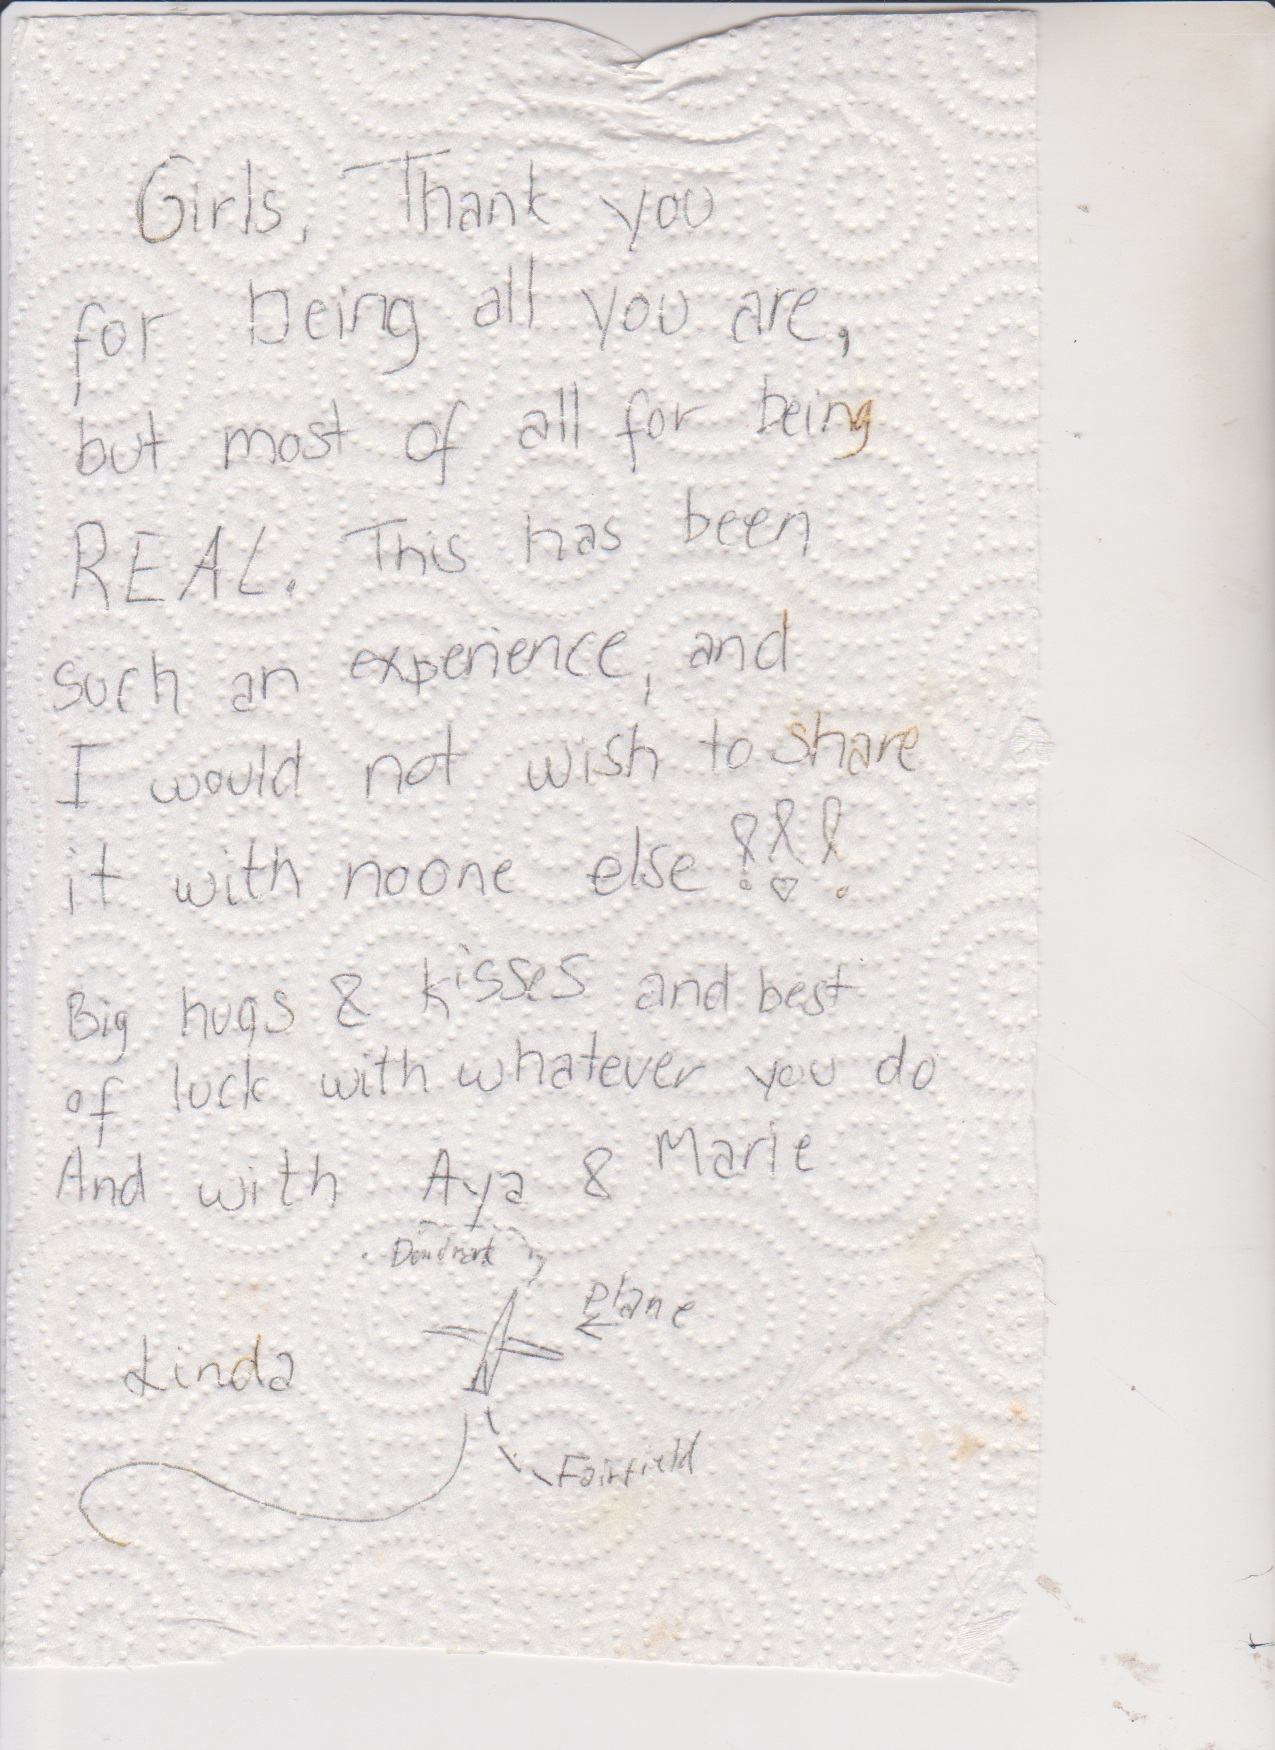 Girls, Thank you
for being all you are,
but most of all for being
REAL. This has been
such an experience, and
I would not wish to share
it with noone else!!!
Big hugs & kisses and best
of luck with whatever you do
And with Aya & Marie
Plane
Linda
Fairfield